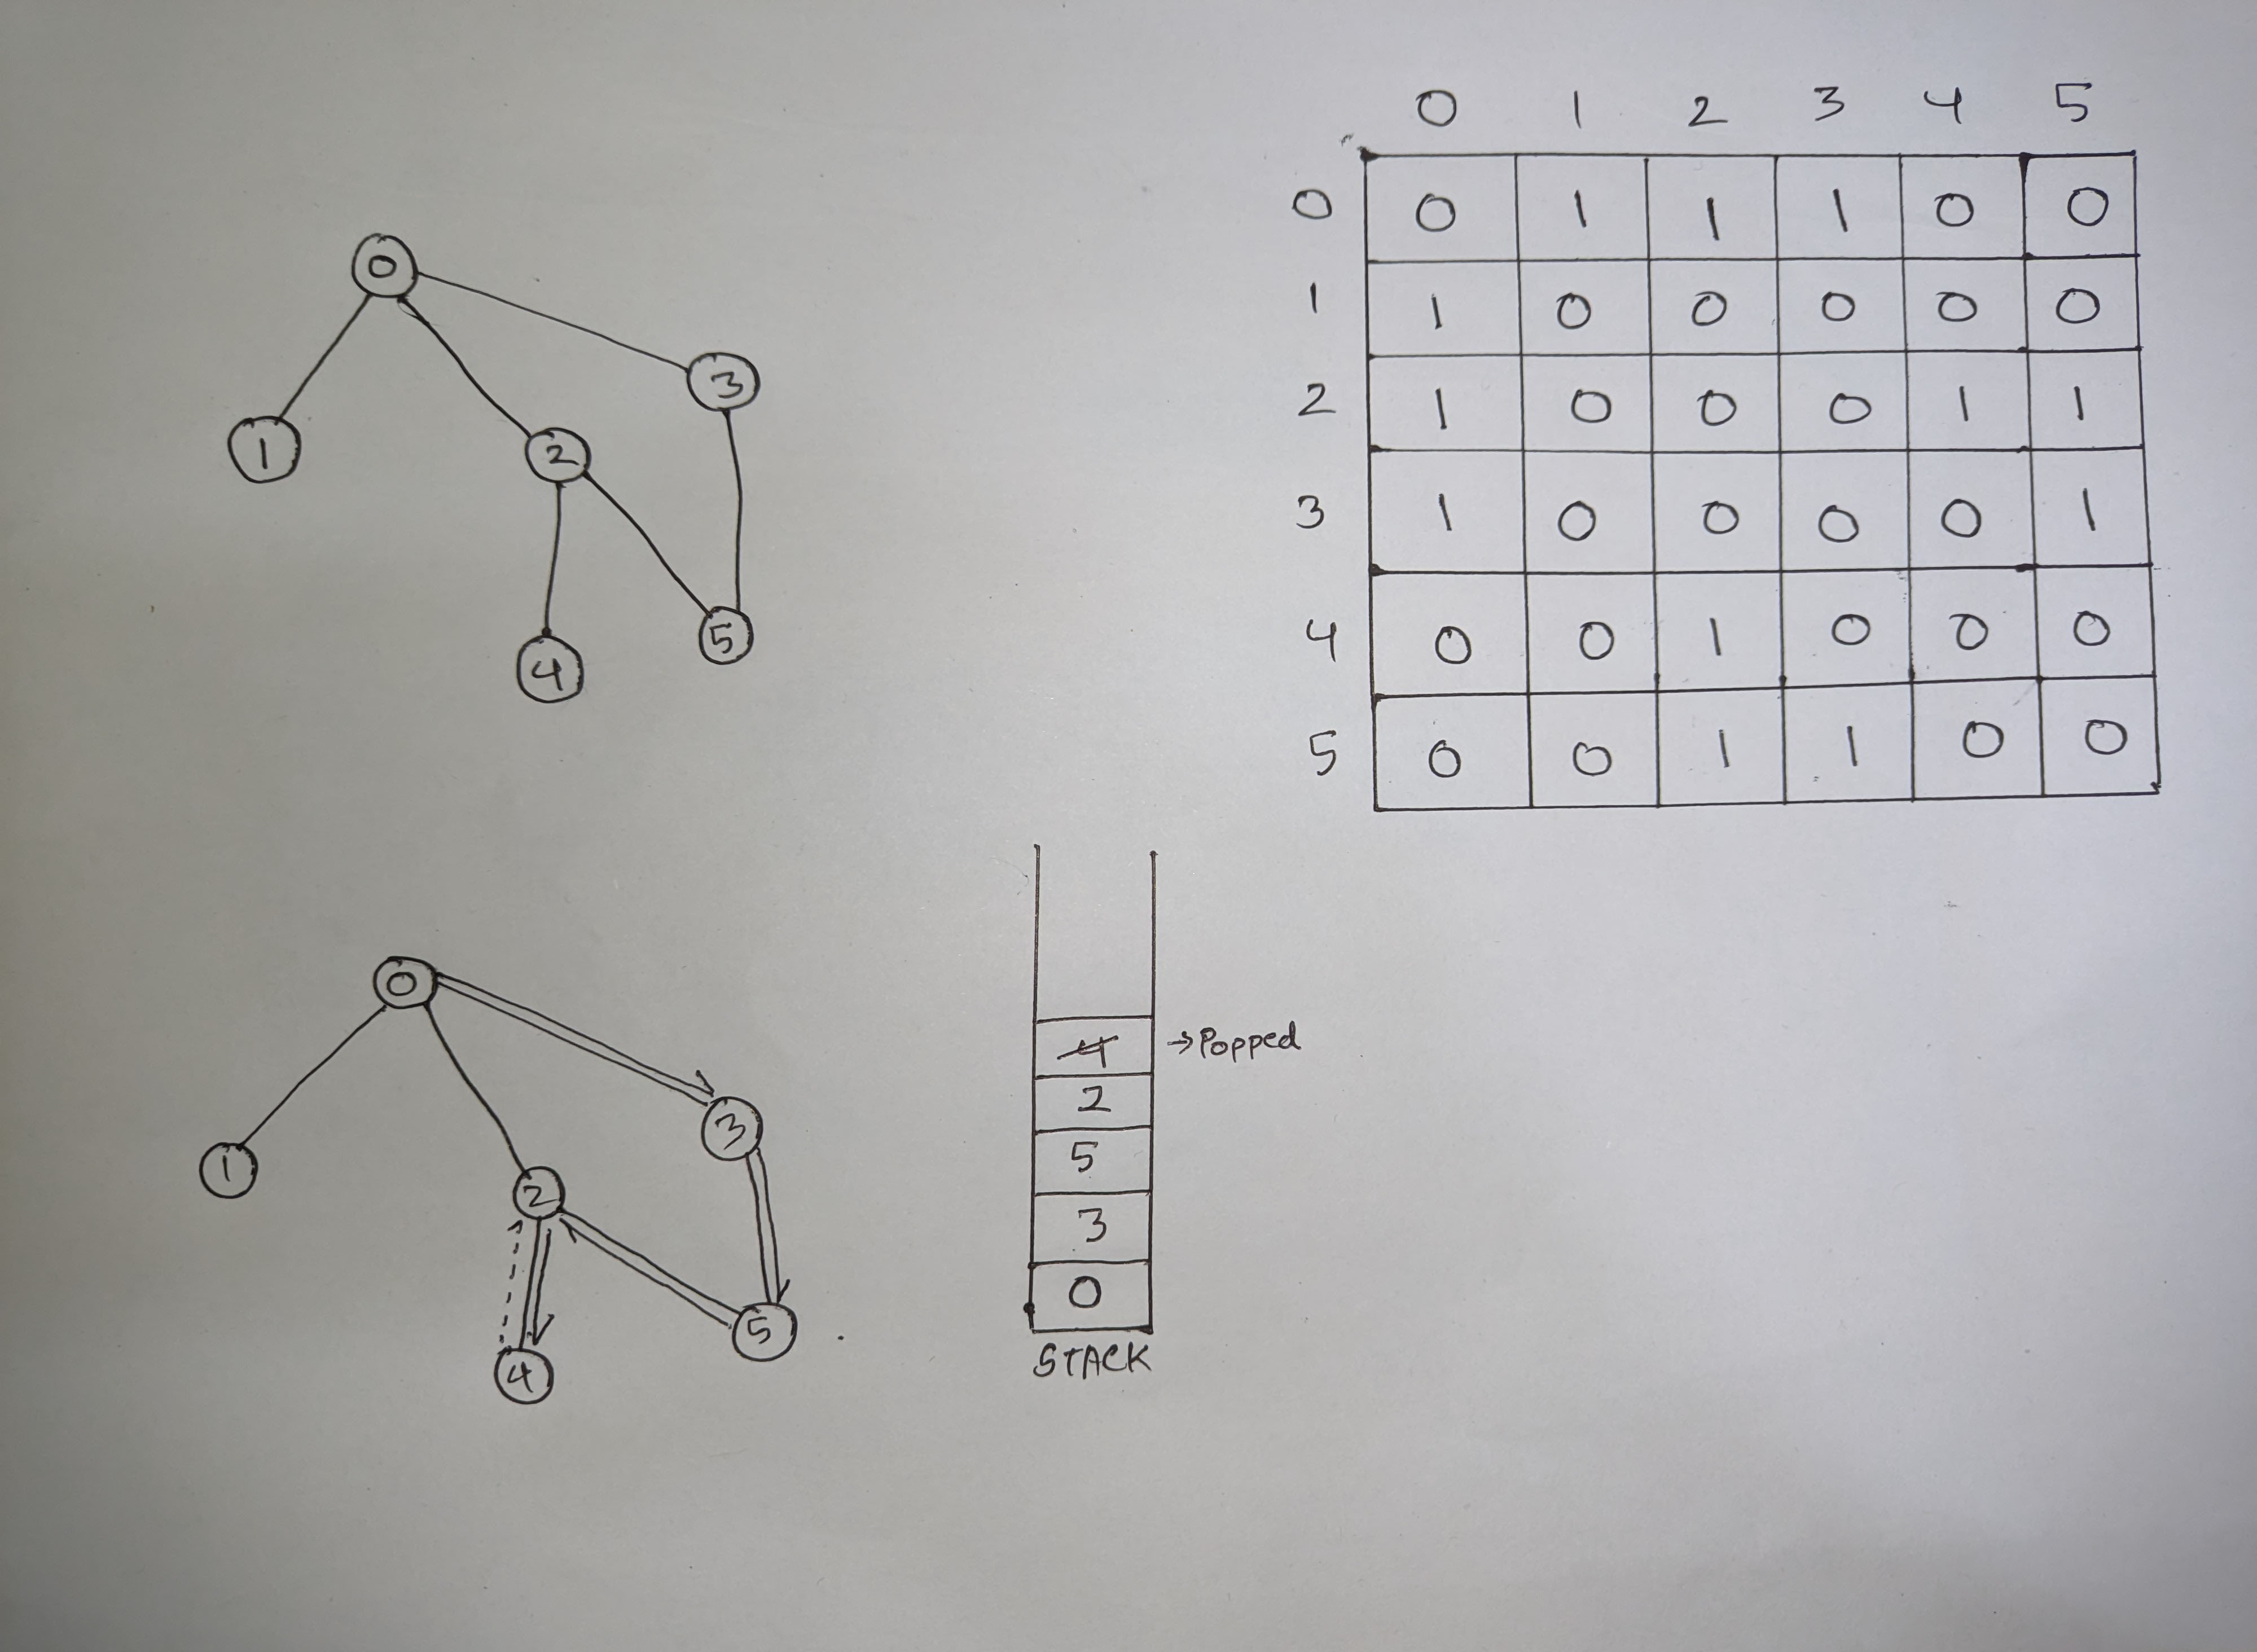 0
3
1
2
5
4
0 1 2 3 4 5
0 0 1 1 1 0 0
1 1 0 0 0 0 0
2 1 0 0 0 1 1
3 1 0 0 0 0 1
4 0 0 1 0 0 0
5 0 0 1 1 0 0
0
3
1
2
5
4
4 →Popped
2
5
3
0
STACK